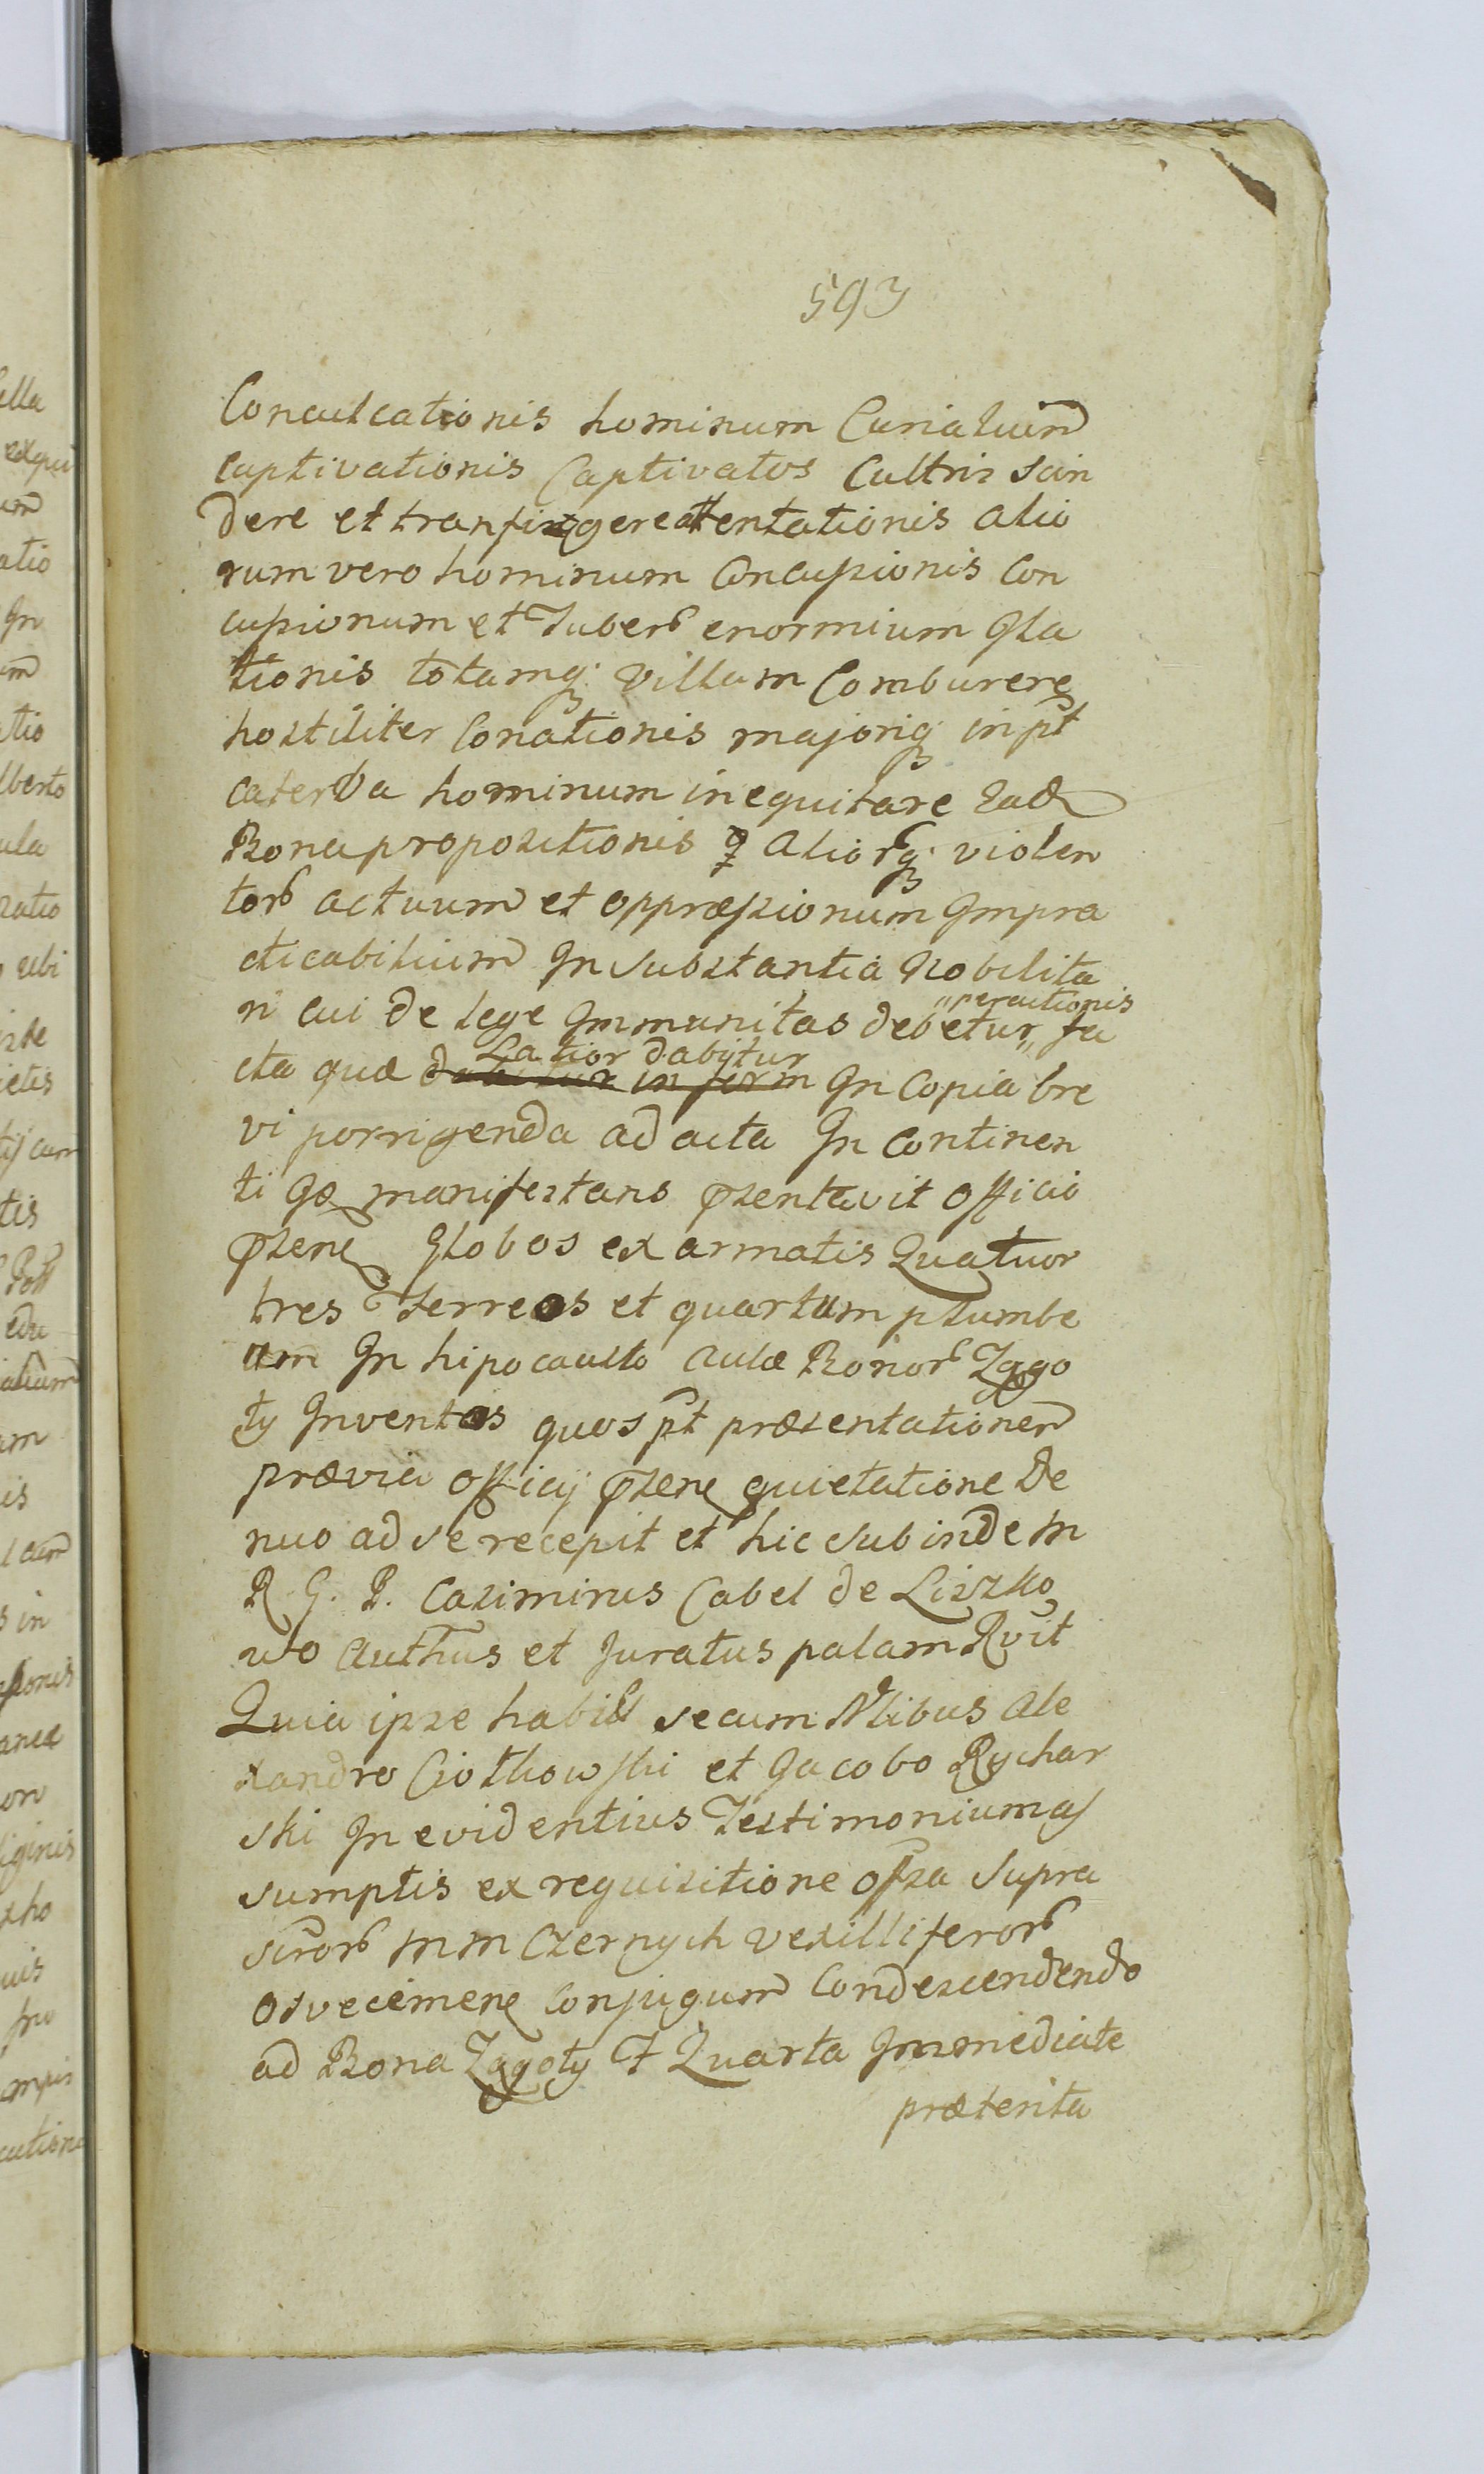 593
Conculcationis hominum Curialium
captivationis Captivatos Cultris scin
dere et transfigere attentationis alio
rum vero hominum Concussionis Con
cussionum et Tuber̃ enormium Illa
tionis totamq; villam Comburere
hostiliter Conationis majoriq; in pt̃
caterva hominum inequitare ead
Bona propositionis q aliorq; violen
tor̃ actuum et oppræssionum Impra
cticabilium In substantia Nobilita
ri cui de lege Immunitas debetur „percutionis„ fa
cta quæ dabitur in form Latior dabitur In Copia bre
vi porrigenda ad acta In Continen
ti Iδe manifestans pzentavit officio
pzene Globos ex armatis Quatuor
tres ferreos et quartum plumbe
um In hipocausto aulæ Bonor̃ Zago
ty Inventos quos pt̃ præsentationem
prævia officij pzene quietatione de
nuo ad se recepit et hic subinde M
R G. P. Casimirus Cabel de Liszko
wo authus et Juratus palam Rvit
Quia ipse habits secum Nlibus Ale
xandro Ciotkowski et Jacobo Rychar
ski In evidentius Testimonium as
sumptis ex requisitione offza supra
scror̃ MM Czernych vexilliferor̃
Osvecimene Conjugum Condescendendo
ad Bona Zagoty F Quarta Immediate
præterita